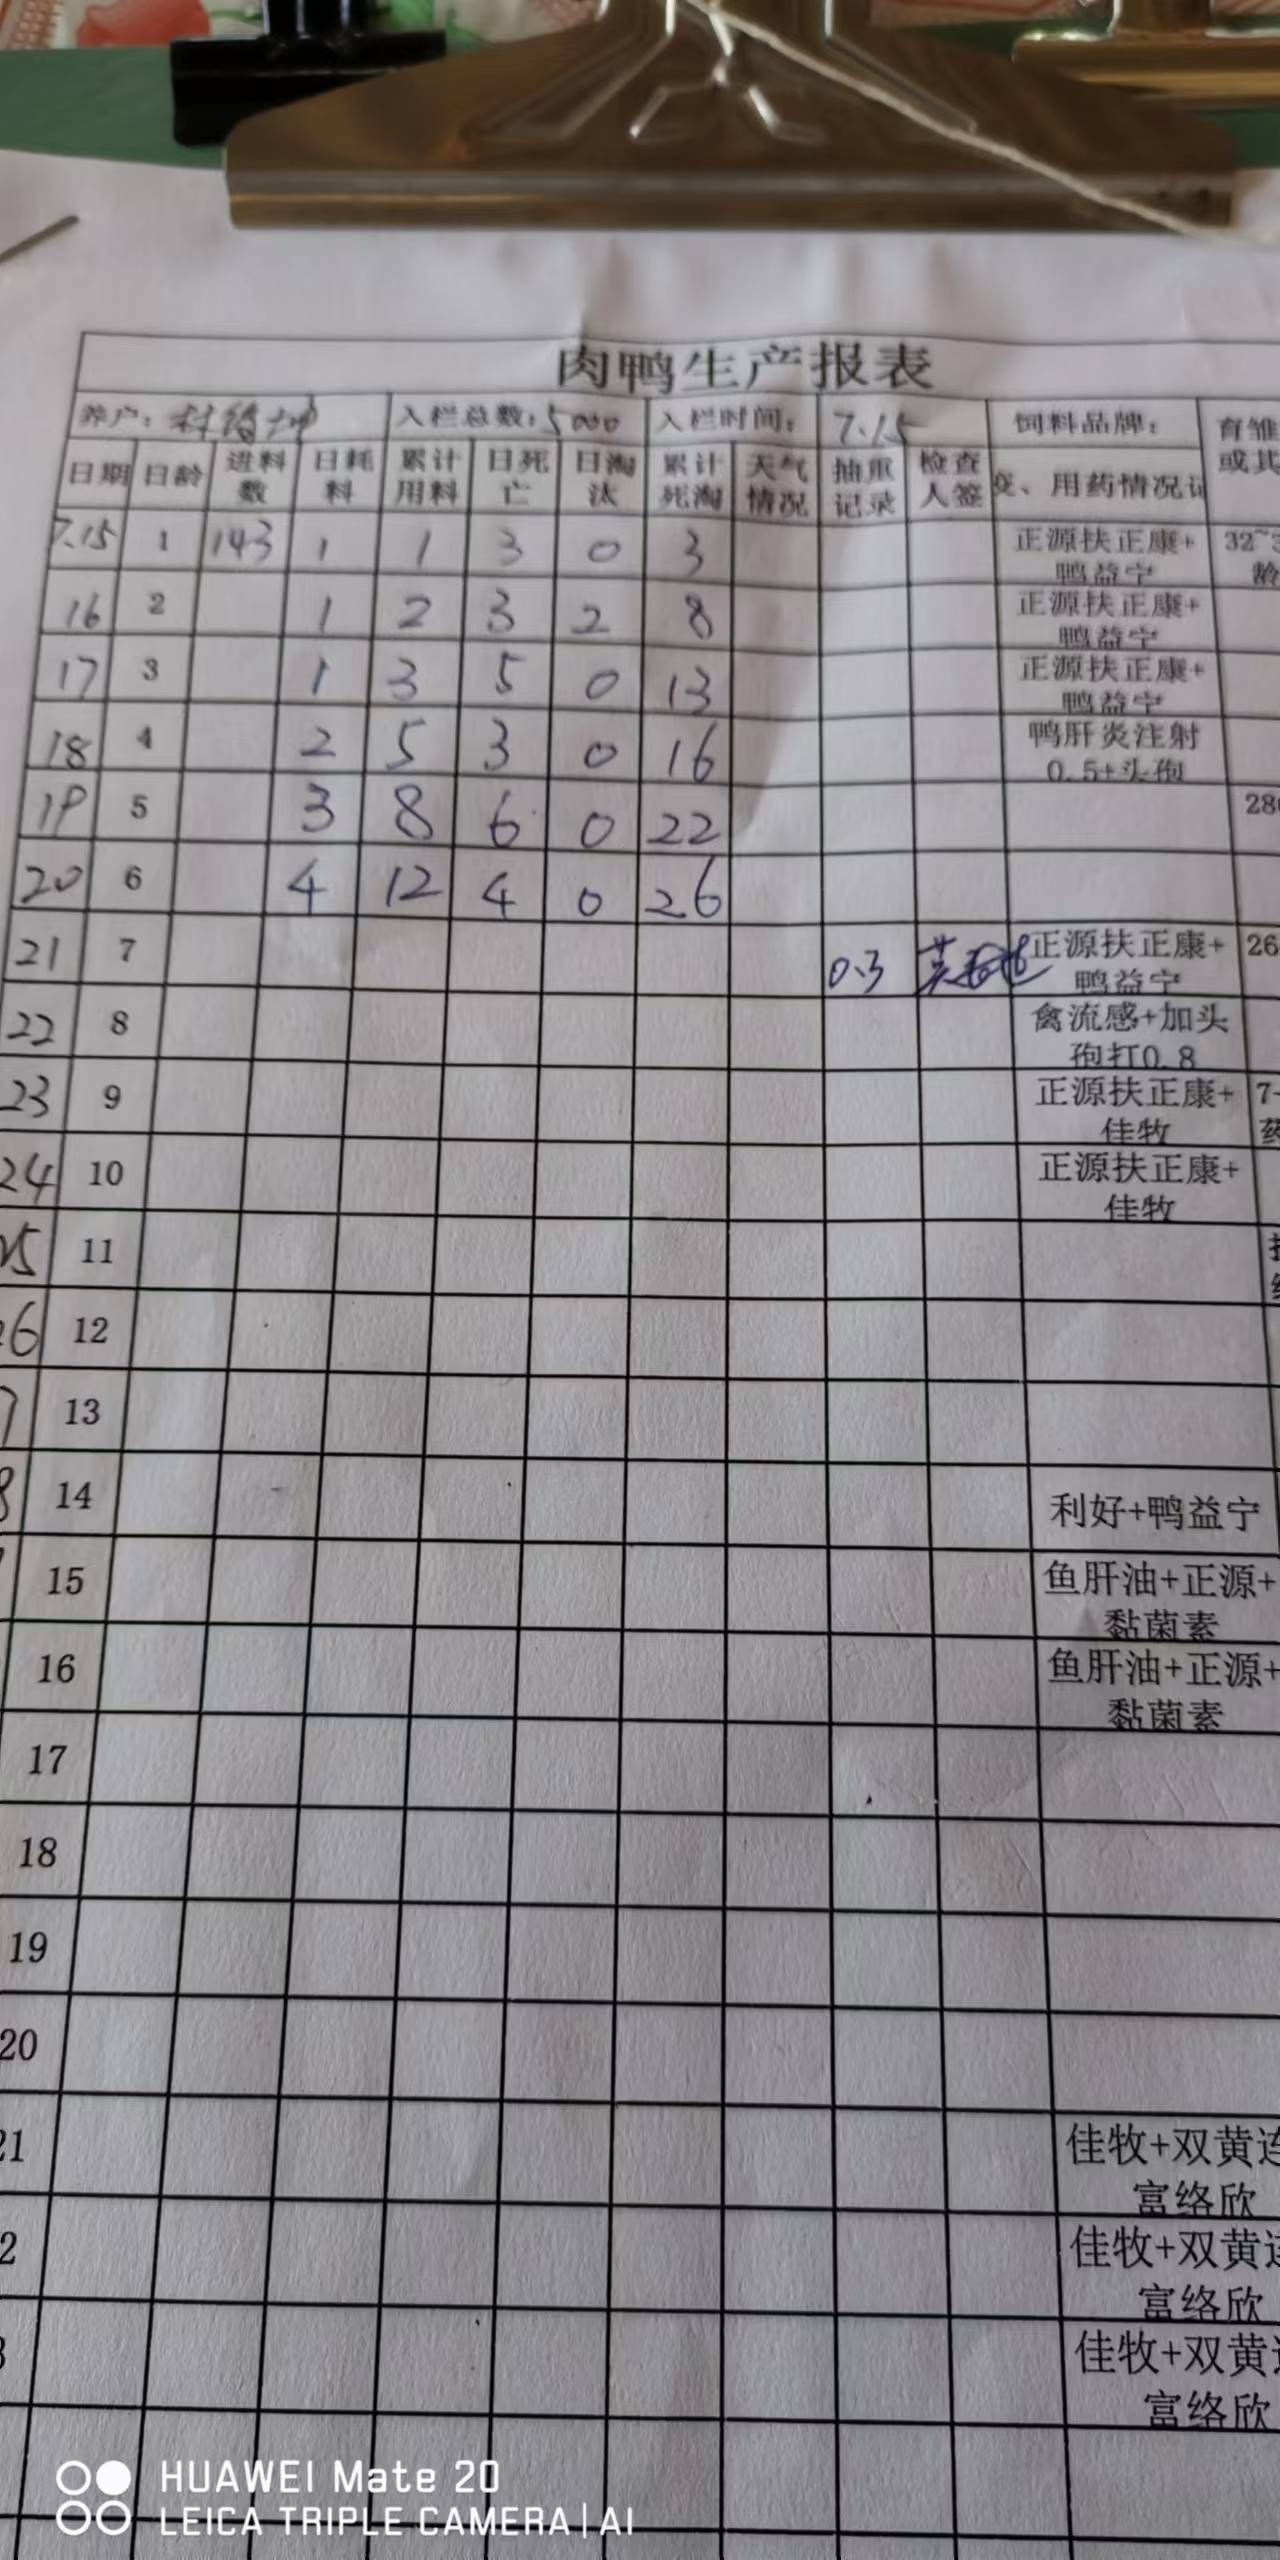 肉鸭生产报表
养户: 入栏总数:5000 入栏时间: 7.15 饲料品牌: 育雏
日期 日龄 进料数 日耗料 累计用料 日死亡 日淘汰 累计死淘 天气情况 抽重记录 检查人签 变、用药情况记 或其
7.15 1 143 1 1 3 0 3 正源扶正康+ 32~3
鸭益宁 龄
16 2 1 2 3 2 8 正源扶正康+
鸭益宁
17 3 1 3 5 0 13 正源扶正康+
鸭益宁
18 4 2 5 3 0 16 鸭肝炎注射
0.5+头孢
19 5 3 8 6 0 22 28
20 6 4 12 4 0 26
21 7 0.3 正源扶正康+ 26
鸭益宁
22 8 禽流感+加头
孢打0.8
23 9 正源扶正康+ 7-
佳牧 药
24 10 正源扶正康+
佳牧
25 11
26 12
7 13
8 14 利好+鸭益宁
15 鱼肝油+正源+
黏菌素
16 鱼肝油+正源+
黏菌素
17
18
19
20
21 佳牧+双黄连
富络欣
2 佳牧+双黄连
富络欣
3 佳牧+双黄连
富络欣
HUAWEI Mate 20
LEICA TRIPLE CAMERA | AI